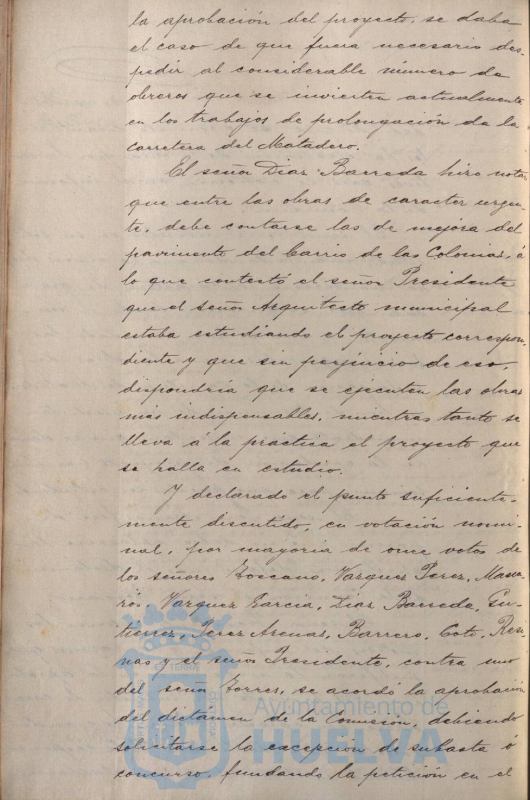 la aprobación del proyecto, se daba
el caso de que fuera necesario des-
pedir al considerable número de
obreros que se invierten actualmente
en los trabajos de prolongación de la
carretera del Matadero.
El señor Diaz Barreda hizo notar
que entre las obras de caracter urgen-
te, debe contarse las de mejora del
pavimento del barrio de las Colonias, á
lo que contestó el señor Presidente
que el señor Arquitecto municipal
estaba estudiando el proyecto correspon-
diente y que sin perjuicio de eso,
dispondría que se ejecuten las obras
más indispensables, mientras tanto se
lleva á la práctica el proyecto que
se halla en estudio.
Y declarado el punto suficiente-
mente discutido, en votación nomi-
nal, por mayoria de once votos de
los señores Toscano, Vazquez Perez, Mase-
rós, Vazquez Garcia, Diaz Barreda, Gu-
tierrez, Perez Arenas, Barrero, Coto, Resi-
nas y el señor Presidente, contra uno
del señor Torres, se acordó la aprobación
del dictamen de la Comisión, debiendo
solicitarse la excepción de subasta ó
concurso, fundando la petición en el
Ayuntamiento de
HUELVA